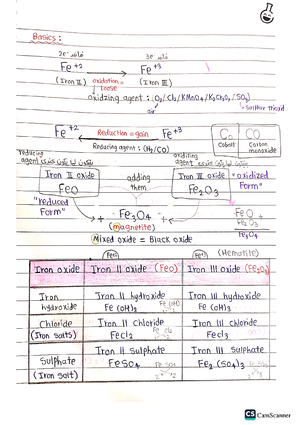 Basics :
2e⁻ فاقد 3e⁻ فاقد
Fe⁺² Fe⁺³
(Iron II) oxidation = Loose (Iron III)
oxidizing agent : O₂ / Cl₂ / KMnO₄ / K₂Cr₂O₇ / SO₃
air
Fe⁺² Reduction = gain Fe⁺³
Reducing agent : (H₂/CO)
Co CO
Cobalt Carbon monoxide
reducing agent
oxidizing agent
Iron II oxide
FeO
adding them
Iron III oxide
Fe₂O₃
"oxidized Form"
"reduced Form"
+ Fe₃O₄ +
(magnetite)
FeO +
Fe₂O₃
Fe₃O₄
Mixed oxide = Black oxide
Fe⁺² Fe⁺³ (Hematite)
Iron oxide Iron II oxide (FeO) Iron III oxide (Fe₂O₃)
Iron hydroxide Iron II hydroxide Fe (OH)₂ Iron III hydroxide Fe (OH)₃
Chloride (Iron Salts) Iron II Chloride FeCl₂ Iron III Chloride FeCl₃
Sulphate (Iron Salt) Iron II Sulphate FeSO₄ Iron III Sulphate Fe₂(SO₄)₃
CS CamScanner